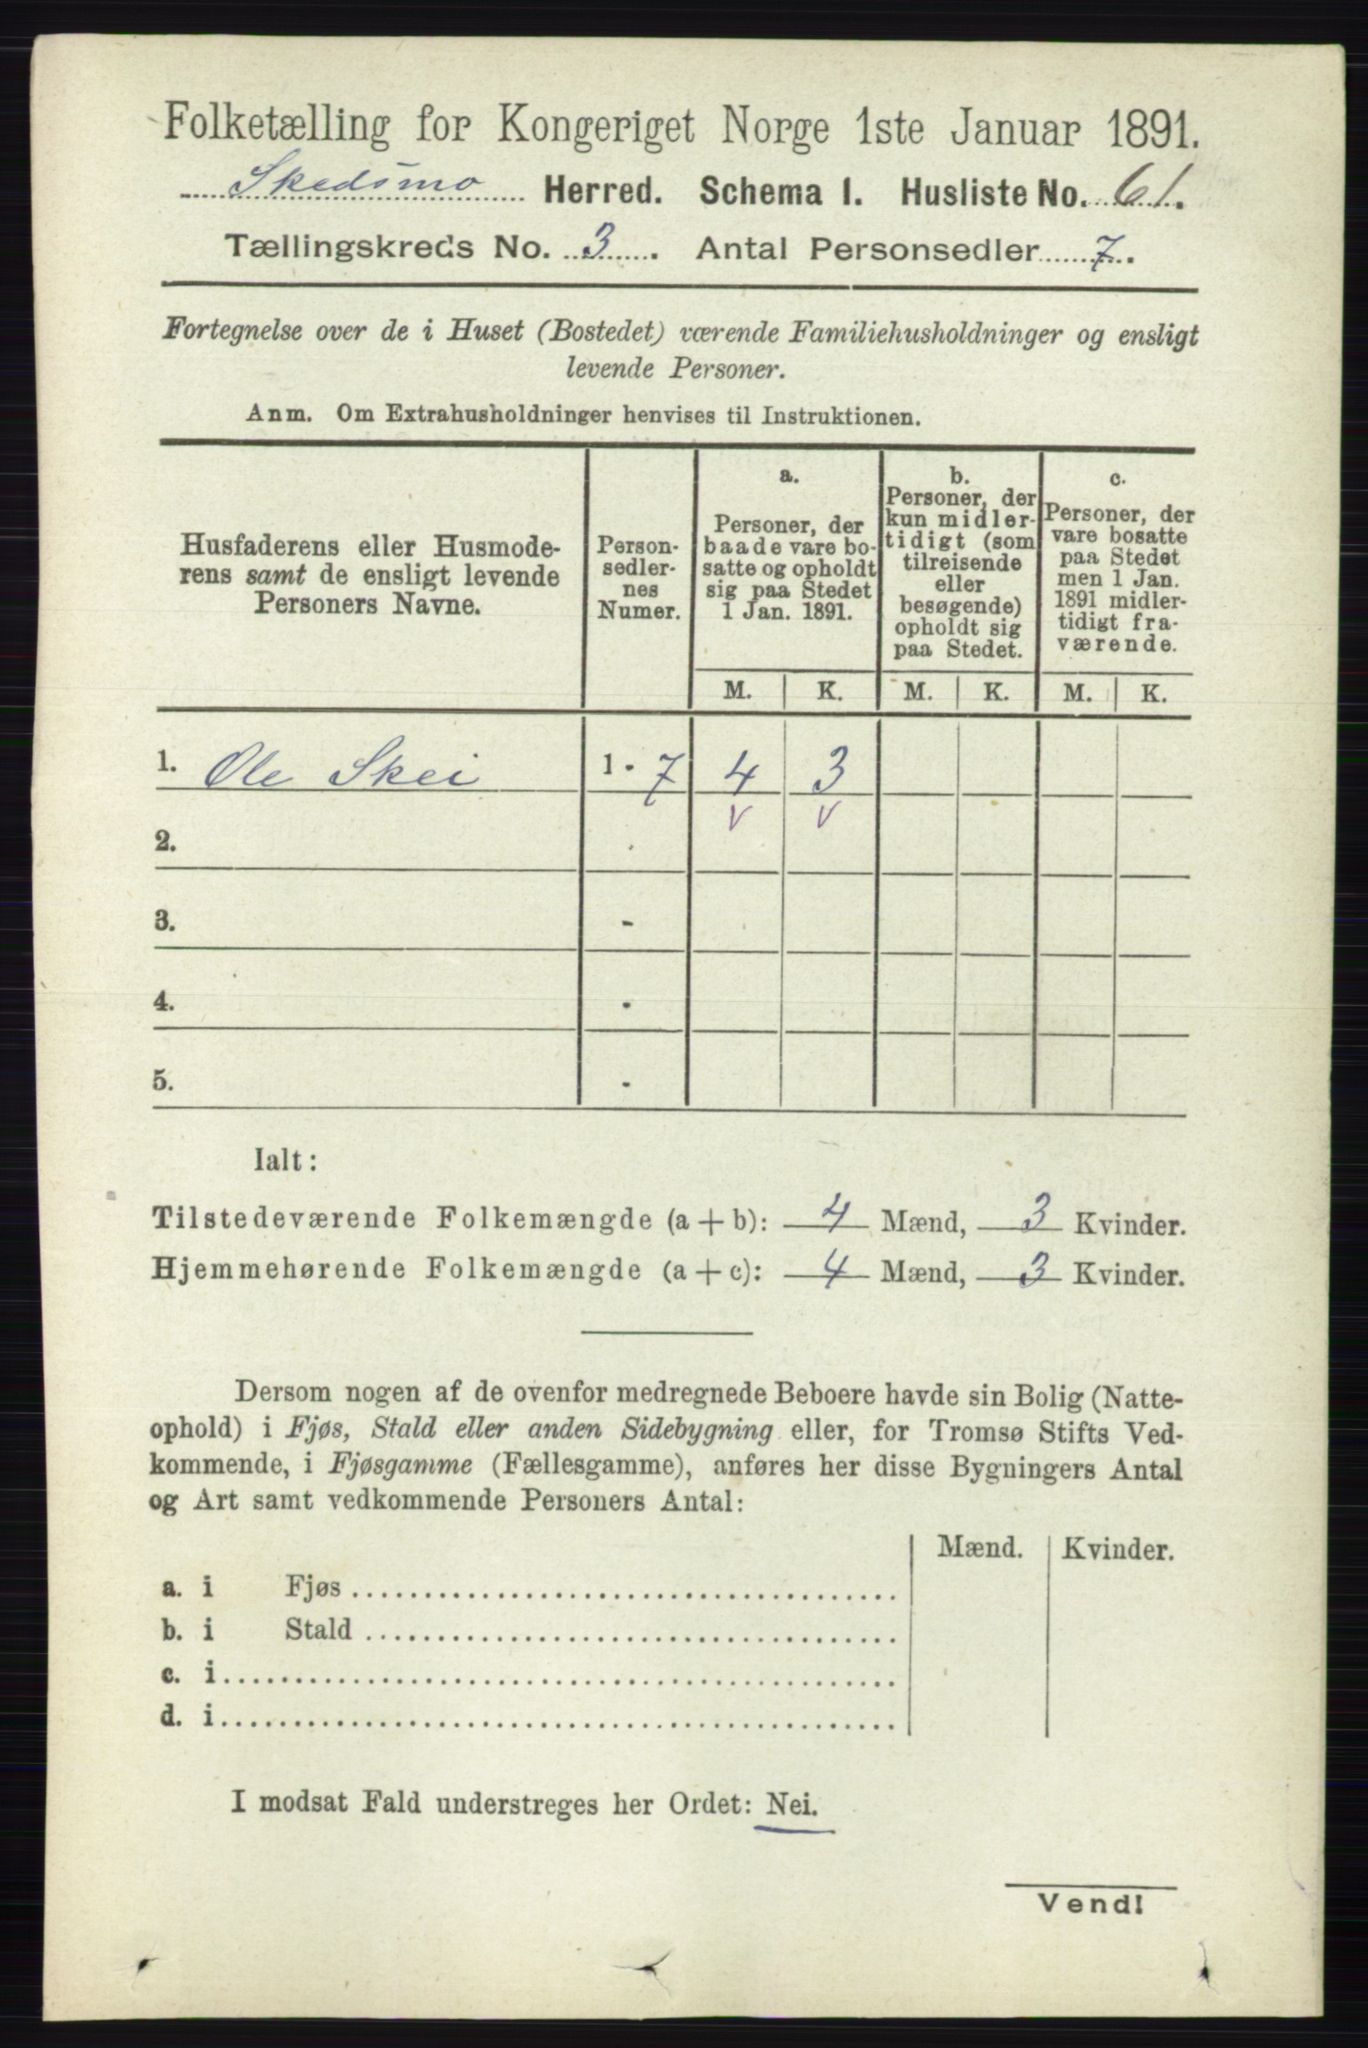 Folketælling for Kongeriget Norge 1ste Januar 1891.
Skedsmo Herred. Schema I. Husliste No. 61.
Tællingskreds No. 3. Antal Personsedler 7.
Fortegnelse over de i Huset (Bostedet) værende Familiehusholdninger og ensligt
levende Personer.
Anm. Om Extrahusholdninger henvises til Instruktionen.
Husfaderens eller Husmode-
rens samt de ensligt levende
Personers Navne.
Person-
sedler-
nes
Numer.
a.
Personer, der
baade vare bo-
satte og opholdt
sig paa Stedet
1 Jan. 1891.
b.
Personer, der
kun midler-
tidigt (som
tilreisende
eller
besøgende)
opholdt sig
paa Stedet.
c.
Personer, der
vare bosatte
paa Stedet
men 1 Jan.
1891 midler-
tidigt fra-
værende.
M. K. M. K. M. K.
1. Ole Skei 1 - 7 4 3
v v
2. -
3. -
4. -
5. -
Ialt:
Tilstedeværende Folkemængde (a + b): 4 Mænd, 3 Kvinder.
Hjemmehørende Folkemængde (a + c): 4 Mænd, 3 Kvinder.
Dersom nogen af de ovenfor medregnede Beboere havde sin Bolig (Natte-
ophold) i Fjøs, Stald eller anden Sidebygning eller, for Tromsø Stifts Ved-
kommende, i Fjøsgamme (Fællesgamme), anføres her disse Bygningers Antal
og Art samt vedkommende Personers Antal:
Mænd. Kvinder.
a. i Fjøs
b. i Stald
c. i
d. i
I modsat Fald understreges her Ordet: Nei.
Vend!